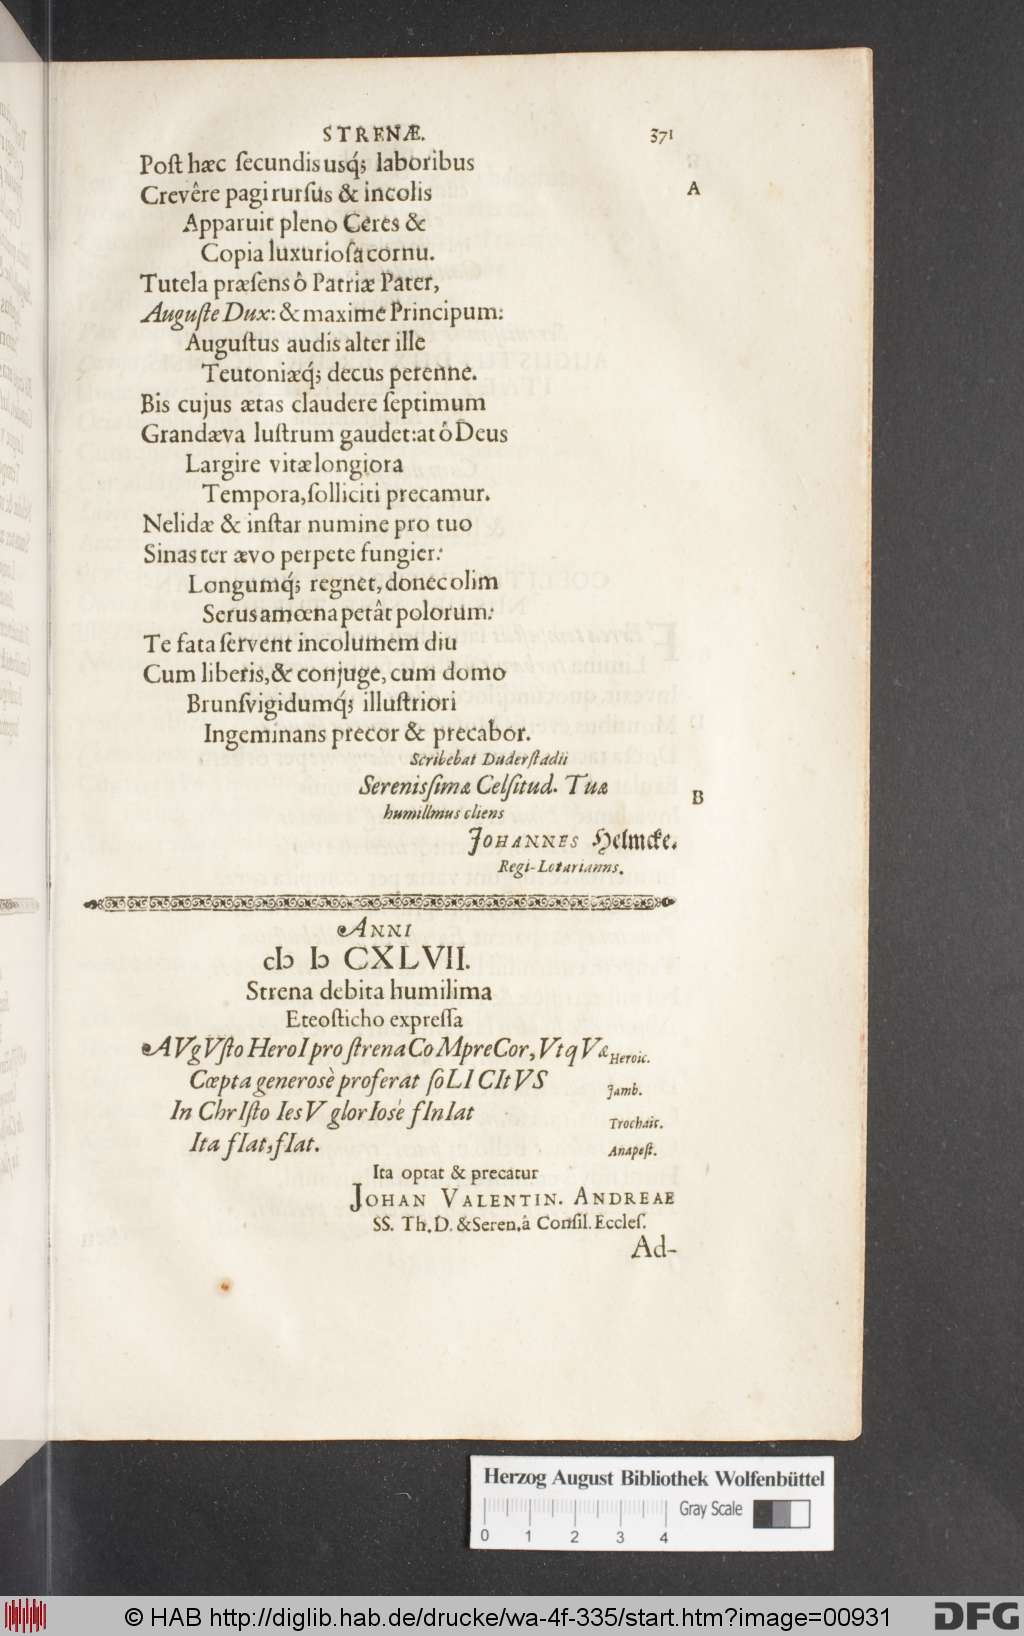 STRENÆ. 371
Poſt hæc ſecundis usq́; laboribus
Crevêre pagi rurſus & incolis A
Apparuit pleno Ceres &
Copia luxurioſa cornu.
Tutela præſens ô Patriæ Pater,
Auguſte Dux: & maxime Principum:
Auguſtus audis alter ille
Teutoniæq́; decus perenne.
Bis cujus ætas claudere ſeptimum
Grandæva luſtrum gaudet: at ô Deus
Largire vitæ longiora
Tempora, ſolliciti precamur.
Nelidæ & inſtar numine pro tuo
Sinas ter ævo perpete fungier:
Longumq́; regnet, donec olim
Serus amœna petât polorum:
Te fata ſervent incolumem diu
Cum liberis, & conjuge, cum domo
Brunſvigidumq́; illuſtriori
Ingeminans precor & precabor.
Scribebat Duderſtadii
Serenisſimæ Celſitud. Tuæ
B
humillmus cliens
JOHANNES Helmcke.
Regi-Lotarianns.
ANNI
cIↄ Iↄ CXLVII.
Strena debita humilima
Eteoſticho expreſſa
AVgVſto HeroI pro ſtrena CoMpreCor, VtqVæ Heroic.
Cœpta generosè proferat ſoLICItVS Jamb.
In ChrIſto IesV glorIosè fInIat Trochaic.
Ita fIat, fIat. Anapeſt.
Ita optat & precatur
JOHAN VALENTIN. ANDREAE
SS. Th. D. & Seren. â Conſil. Eccleſ.
Ad-
Herzog August Bibliothek Wolfenbüttel
Gray Scale
0 1 2 3 4
© HAB http://diglib.hab.de/drucke/wa-4f-335/start.htm?image=00931
DFG